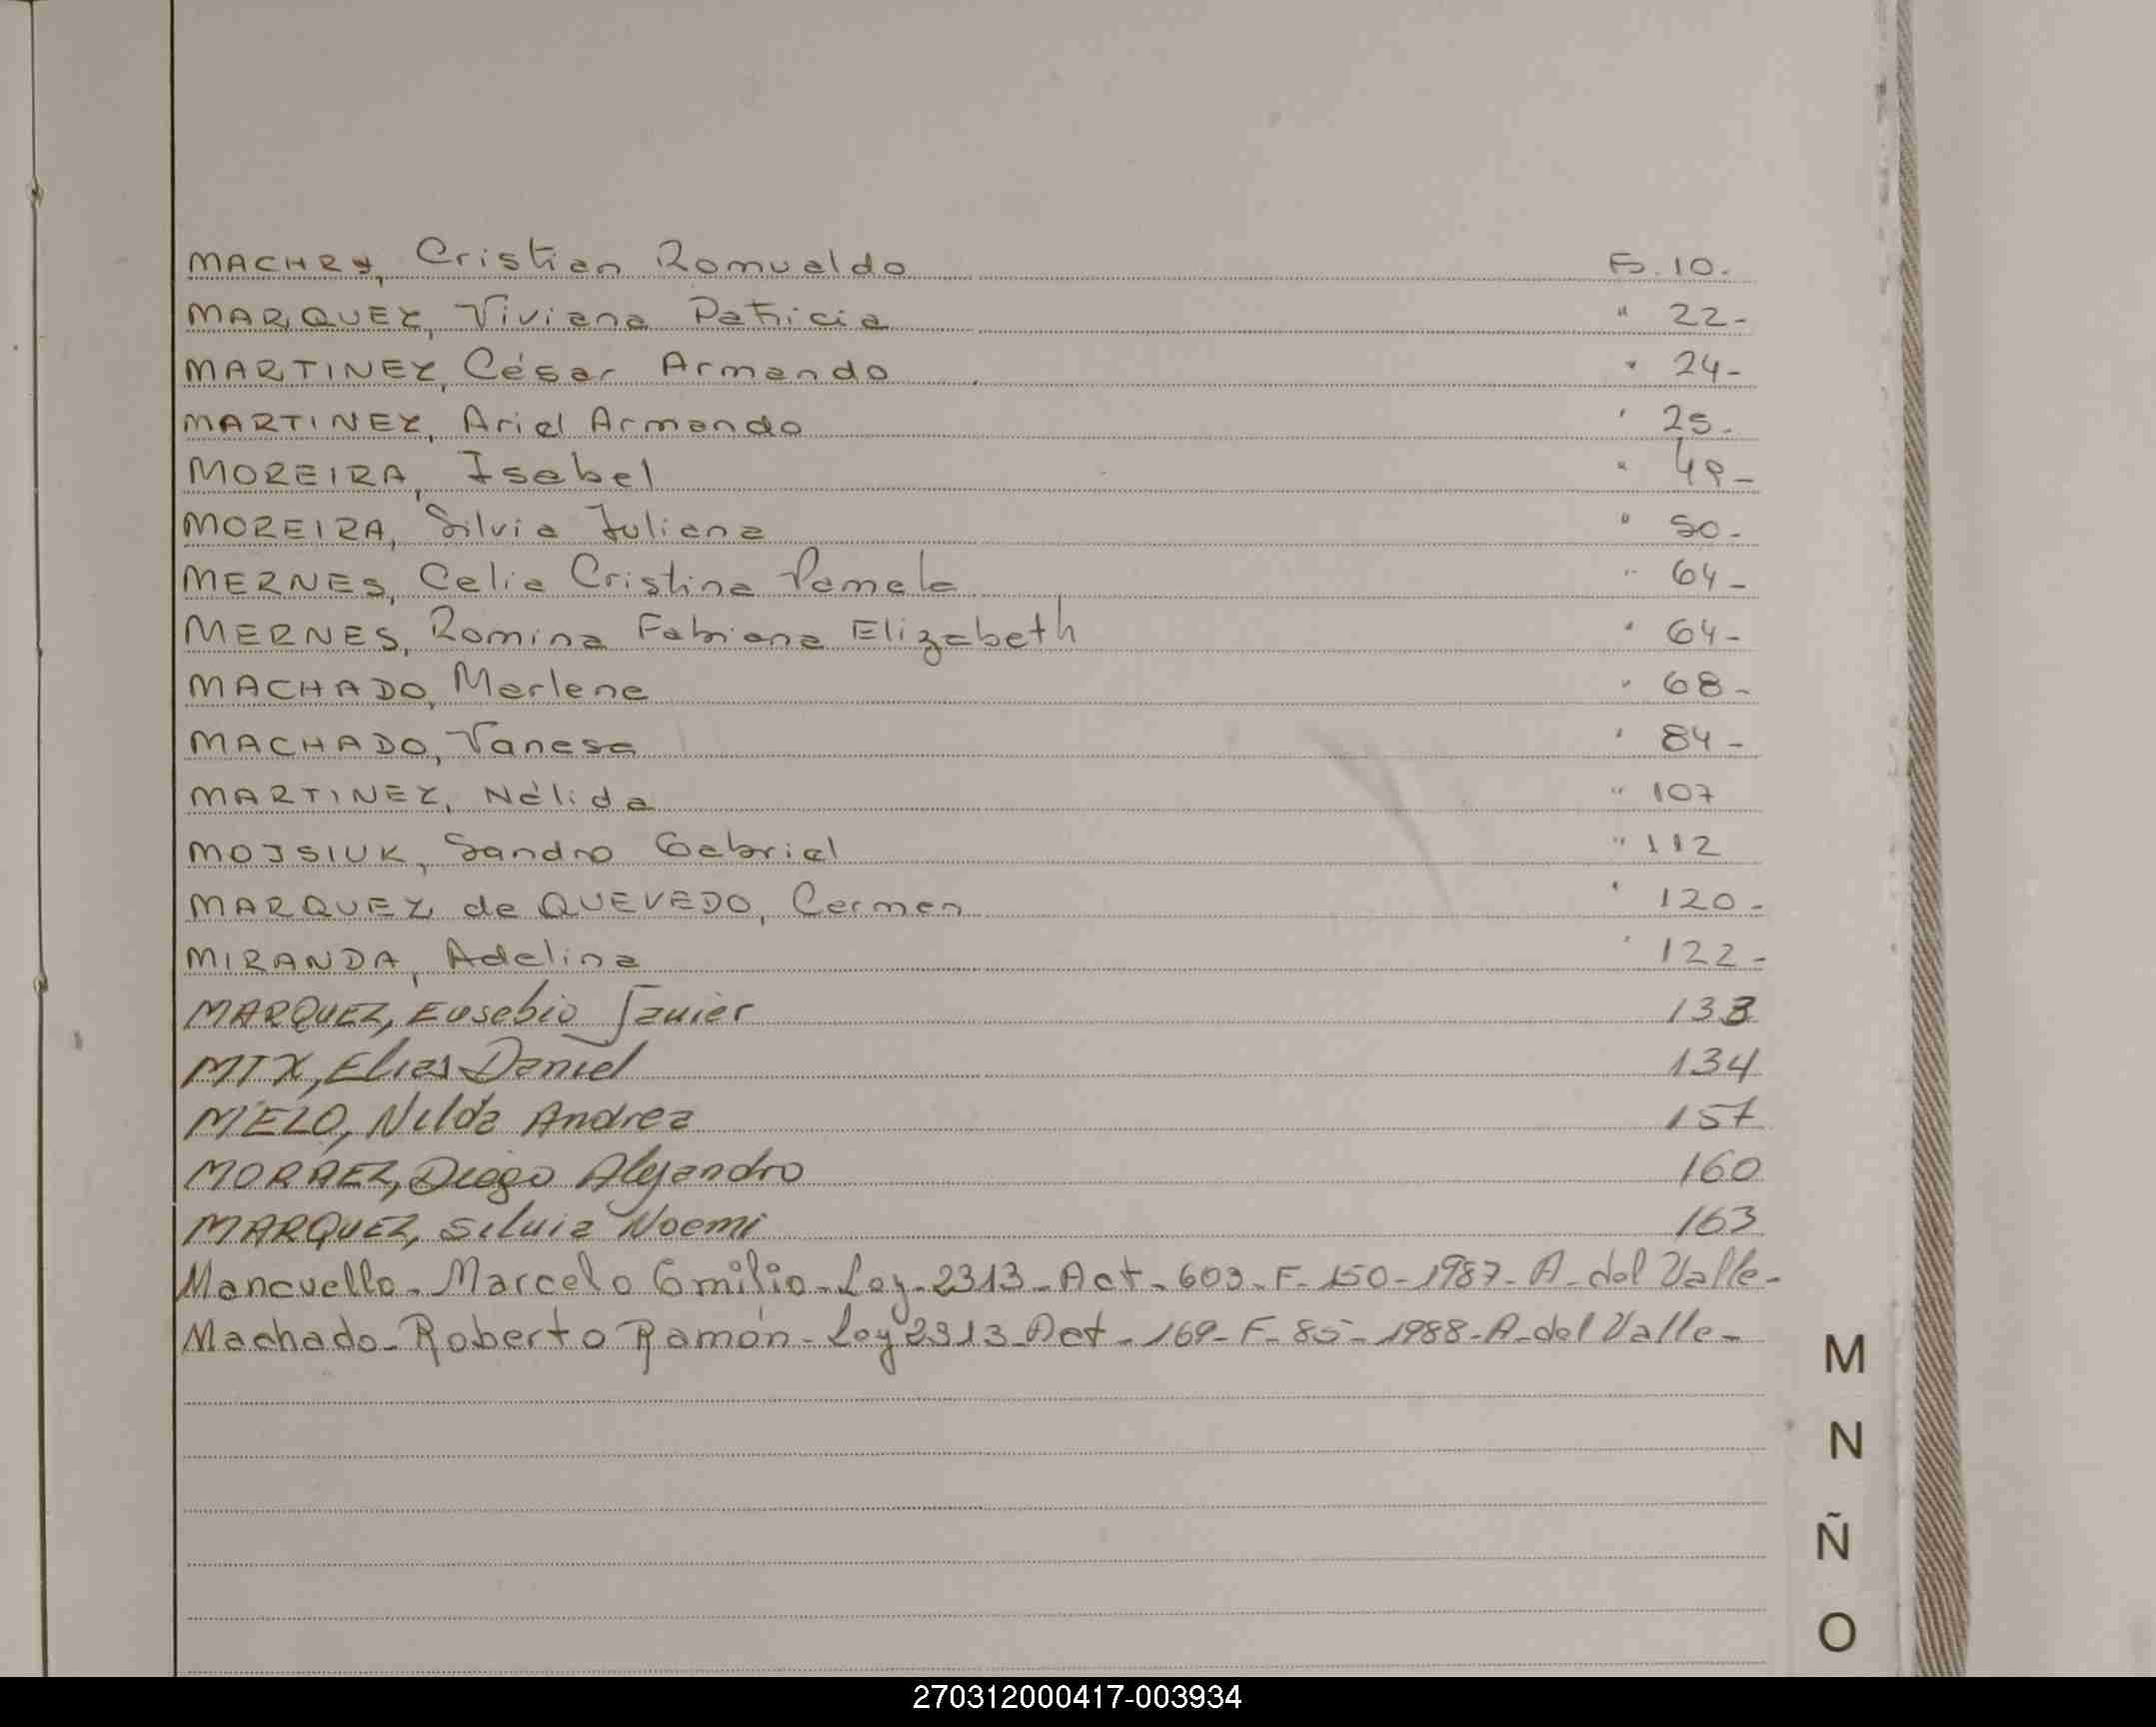 MACHRY, Cristian Romualdo Fs. 10.
MARQUEZ, Viviana Patricia " 22-
MARTINEZ, César Armando " 24-
MARTINEZ, Ariel Armando " 25-
MOREIRA, Isabel " 49-
MOREIRA, Silvia Juliana " 50-
MERNES, Celia Cristina Pamela " 64-
MERNES, Romina Fabiana Elizabeth " 64-
MACHADO, Marlene " 68-
MACHADO, Vanesa " 84-
MARTINEZ, Nélida " 107
MOJSIUK, Sandro Gabriel " 112
MARQUEZ de QUEVEDO, Carmen " 120-
MIRANDA, Adelina " 122-
MARQUEZ, Eusebio Javier 133
MIX, Elias Daniel 134
MELO, Nilda Andrea 157
MORAEZ, Diego Alejandro 160
MARQUEZ, Silvia Noemi 163
Mancuello-Marcelo Emilio-Ley-2313-Act-603-F-150-1987-A-del Valle-
Machado-Roberto Ramón-Ley 2313-Act-169-F-85-1988-A-del Valle-
M
N
Ñ
O
270312000417-003934